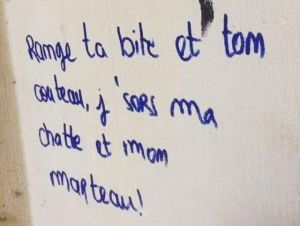 Range ta bite et tom
couteau, j'sors ma
chatte et mom
marteau!